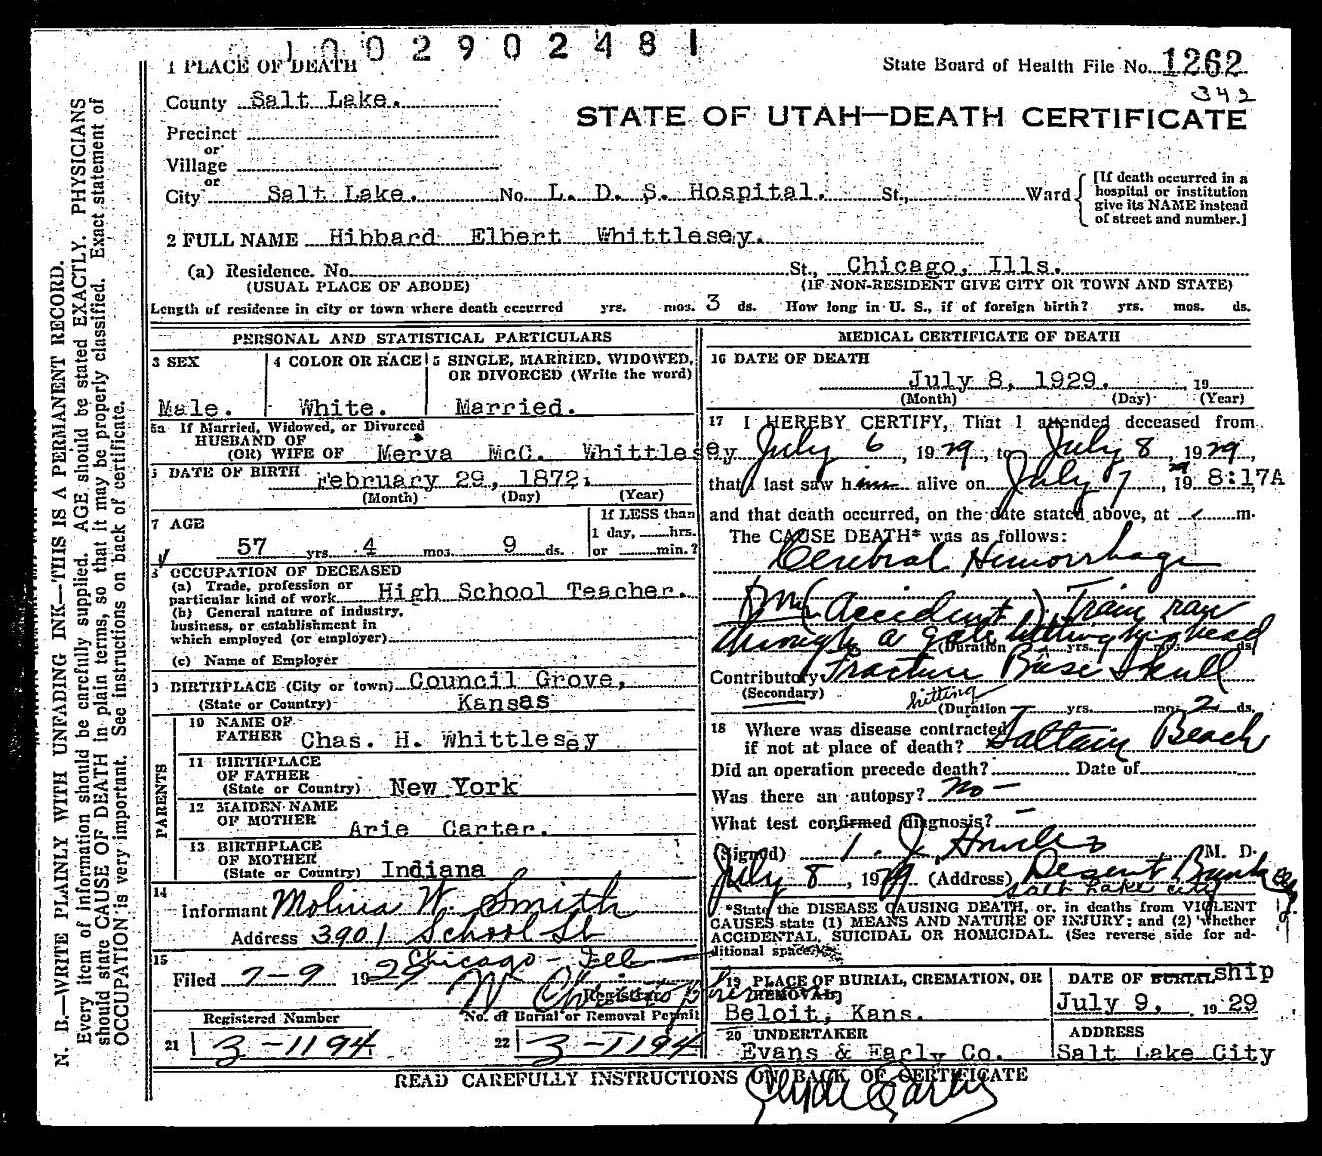 1 0 0 2 9 0 2 4 8 1
1 PLACE OF DEATH
State Board of Health File No. 1262
342
County Salt Lake.
STATE OF UTAH—DEATH CERTIFICATE
Precinct
or
Village
or
City Salt Lake. No. L. D. S. Hospital. St., Ward
[If death occurred in a hospital or institution give its NAME instead of street and number.]
2 FULL NAME Hibbard Elbert Whittlesey.
(a) Residence. No. St., Chicago, Ills.
(USUAL PLACE OF ABODE) (IF NON-RESIDENT GIVE CITY OR TOWN AND STATE)
Length of residence in city or town where death occurred yrs. mos. 3 ds. How long in U. S., if of foreign birth? yrs. mos. ds.
PERSONAL AND STATISTICAL PARTICULARS
3 SEX
Male.
4 COLOR OR RACE
White.
5 SINGLE, MARRIED, WIDOWED, OR DIVORCED (Write the word)
Married.
5a If Married, Widowed, or Divorced
HUSBAND OF
(OR) WIFE OF Merva McC. Whittlesey
DATE OF BIRTH February 29, 1872.
(Month) (Day) (Year)
7 AGE
57 yrs. 4 mos. 9 ds.
If LESS than
1 day, hrs.
or min.?
OCCUPATION OF DECEASED
(a) Trade, profession or
particular kind of work High School Teacher.
(b) General nature of industry,
business, or establishment in
which employed (or employer)
(c) Name of Employer
BIRTHPLACE (City or town) Council Grove,
(State or Country) Kansas
PARENTS
10 NAME OF
FATHER Chas. H. Whittlesey
11 BIRTHPLACE
OF FATHER
(State or Country) New York
12 MAIDEN NAME
OF MOTHER Arie Carter.
13 BIRTHPLACE
OF MOTHER
(State or Country) Indiana
14
Informant W. Smith
Address 3901 School St
Chicago - Ill
15
Filed 7-9 1929
Registrar
Registered Number
21 3-1194
No. of Burial or Removal Permit
22 3-1194
MEDICAL CERTIFICATE OF DEATH
16 DATE OF DEATH
July 8, 1929. 19
(Month) (Day) (Year)
17 I HEREBY CERTIFY, That I attended deceased from
July 6, 1929, to July 8, 1929
that I last saw him alive on July 7, 19 8:17A
and that death occurred, on the date stated above, at m.
The CAUSE DEATH* was as follows:
Cerebral Hemorrhage
(Accident) Train ran
through a gate hitting his head
(Duration yrs. mos. ds.
Contributory Fracture Base Skull
(Secondary) hitting
(Duration yrs. mos. 2 ds.
18 Where was disease contracted
if not at place of death? Saltair Beach
Did an operation precede death? Date of
Was there an autopsy? No -
What test confirmed diagnosis? -
(Signed) M. D.
July 8, 1929 (Address) Deseret Bank
Salt Lake City
*State the DISEASE CAUSING DEATH, or, in deaths from VIOLENT
CAUSES state (1) MEANS AND NATURE OF INJURY; and (2) whether
ACCIDENTAL, SUICIDAL OR HOMICIDAL. (See reverse side for ad-
ditional space.)
19 PLACE OF BURIAL, CREMATION, OR
REMOVAL
Beloit, Kans.
DATE OF BURIAL ship
July 9, 1929
20 UNDERTAKER
Evans & Early Co.
ADDRESS
Salt Lake City
READ CAREFULLY INSTRUCTIONS ON BACK OF CERTIFICATE
Clyde Early
N. B.—WRITE PLAINLY WITH UNFADING INK—THIS IS A PERMANENT RECORD.
Every item of information should be carefully supplied. AGE should be stated EXACTLY. PHYSICIANS
should state CAUSE OF DEATH in plain terms, so that it may be properly classified. Exact statement of
OCCUPATION is very important. See instructions on back of certificate.